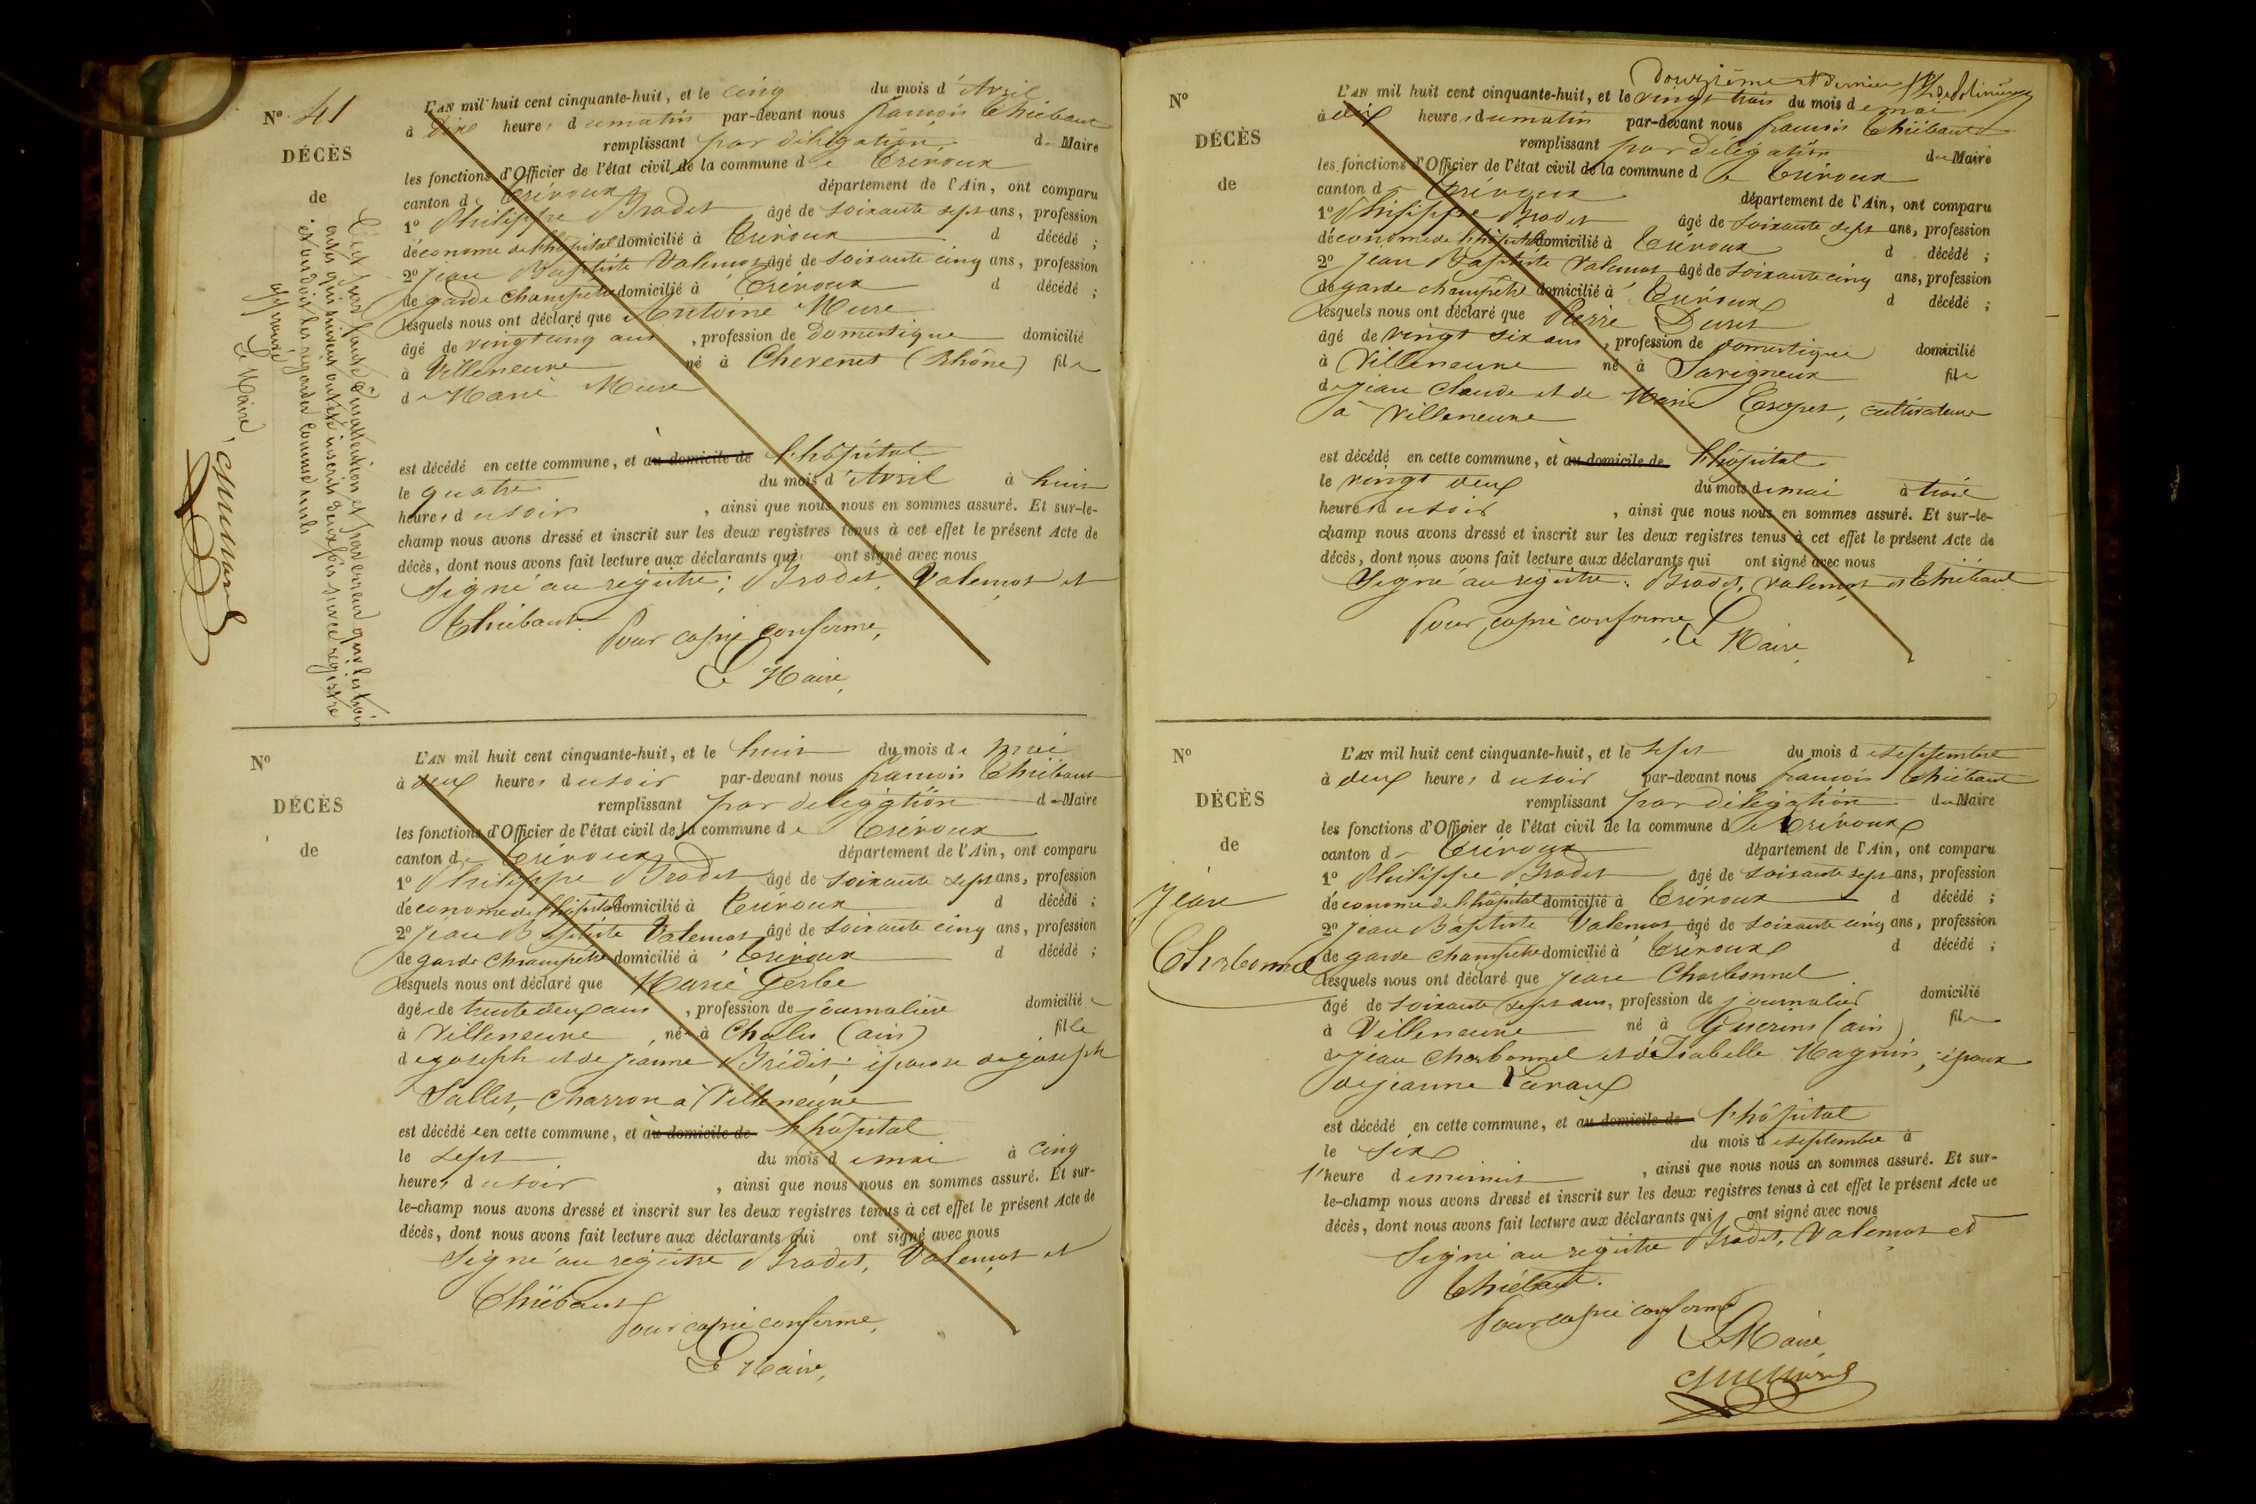 N° 41
DÉCÈS
de
C'est par faute d'inattention et par erreur que les trois
actes qui suivent ont été inscrits deux fois sur ce registre
et on doit les regarder comme nuls
approuvé
Le Maire,
L'AN mil huit cent cinquante-huit, et le cinq du mois d'Avril
à dix heures du matin par-devant nous françois Thiébaut
remplissant par délégation du Maire
les fonctions d'Officier de l'état civil de la commune de Trévoux
canton de Trévoux département de l'Ain, ont comparu
1° Philippe Brodet âgé de soixante sept ans, profession
d'économe de l'hôpital domicilié à Trévoux d décédé ;
2° Jean Baptiste Valemot âgé de soixante cinq ans, profession
de garde champêtre domicilié à Trévoux d décédé ;
lesquels nous ont déclaré que Antoine Mure
âgé de vingt cinq ans, profession de Domestique domicilié
à Villeneuve né à Chevenet (Rhône) fils
de Marie Mure
est décédé en cette commune, et au domicile de l'hôpital
le quatre du mois d'Avril à huit
heures du soir, ainsi que nous nous en sommes assuré. Et sur-le-
champ nous avons dressé et inscrit sur les deux registres tenus à cet effet le présent Acte de
décès, dont nous avons fait lecture aux déclarants qui ont signé avec nous
Signé au registre: Brodet, Valemot et
Thiébaut
Pour copie conforme,
Le Maire,
N°
DÉCÈS
de
L'AN mil huit cent cinquante-huit, et le huit du mois de mai
à deux heures du soir par-devant nous françois Thiébaut
remplissant par délégation du Maire
les fonctions d'Officier de l'état civil de la commune de Trévoux
canton de Trévoux département de l'Ain, ont comparu
1° Philippe Brodet âgé de soixante sept ans, profession
d'économe de l'hôpital domicilié à Trévoux d décédé ;
2° Jean Baptiste Valemot âgé de soixante cinq ans, profession
de garde champêtre domicilié à Trévoux d décédé ;
lesquels nous ont déclaré que Marie Gerbe
âgée de trente deux ans, profession de journalière domiciliée
à Villeneuve, née à Chales (ain) fille
de joseph et de jeanne Brédit; épouse de joseph
Sallet, charron à Villeneuve
est décédée en cette commune, et au domicile de l'hôpital
le sept du mois de mai à cinq
heures du soir, ainsi que nous nous en sommes assuré. Et sur-
le-champ nous avons dressé et inscrit sur les deux registres tenus à cet effet le présent Acte de
décès, dont nous avons fait lecture aux déclarants qui ont signé avec nous
Signé au registre Brodet, Valemot et
Thiébaut
Pour copie conforme,
Le Maire,
N°
DÉCÈS
de
Douzième et dernier
L'AN mil huit cent cinquante-huit, et le vingt trois du mois de mai
à dix heures du matin par-devant nous françois Thiébaut
remplissant par délégation du Maire
les fonctions d'Officier de l'état civil de la commune de Trévoux
canton de Trévoux département de l'Ain, ont comparu
1° Philippe Brodet âgé de soixante sept ans, profession
d'économe de l'hôpital domicilié à Trévoux d décédé ;
2° Jean Baptiste Valemot âgé de soixante cinq ans, profession
de garde champêtre domicilié à Trévoux d décédé ;
lesquels nous ont déclaré que Pierre Duret
âgé de vingt six ans, profession de domestique domicilié
à Villeneuve né à Savigneux fils
de jean Claude et de Marie Crepet, cultivateurs
à Villeneuve
est décédé en cette commune, et au domicile de l'hôpital
le vingt deux du mois de mai à trois
heures du soir, ainsi que nous nous en sommes assuré. Et sur-le-
champ nous avons dressé et inscrit sur les deux registres tenus à cet effet le présent Acte de
décès, dont nous avons fait lecture aux déclarants qui ont signé avec nous
Signé au registre: Brodet, Valemot et Thiébaut
Pour copie conforme,
Le Maire,
N°
DÉCÈS
de
Jean
Charbonnel
L'AN mil huit cent cinquante-huit, et le sept du mois de septembre
à deux heures du soir par-devant nous françois Thiébaut
remplissant par délégation du Maire
les fonctions d'Officier de l'état civil de la commune de Trévoux
canton de Trévoux département de l'Ain, ont comparu
1° Philippe Brodet âgé de soixante sept ans, profession
d'économe de l'hôpital domicilié à Trévoux d décédé ;
2° Jean Baptiste Valemot âgé de soixante cinq ans, profession
de garde champêtre domicilié à Trévoux d décédé ;
lesquels nous ont déclaré que jean Charbonnel
âgé de soixante sept ans, profession de journalier domicilié
à Villeneuve né à Guerins (ain) fils
de jean Charbonnel et d'Isabelle Magnin, époux
de jeanne Laraux
est décédé en cette commune, et au domicile de l'hôpital
le six du mois de septembre à
l'heure de minuit, ainsi que nous nous en sommes assuré. Et sur-
le-champ nous avons dressé et inscrit sur les deux registres tenus à cet effet le présent Acte de
décès, dont nous avons fait lecture aux déclarants qui ont signé avec nous
Signé au registre Brodet, Valemot et
Thiébaut.
Pour copie conforme
Le Maire,